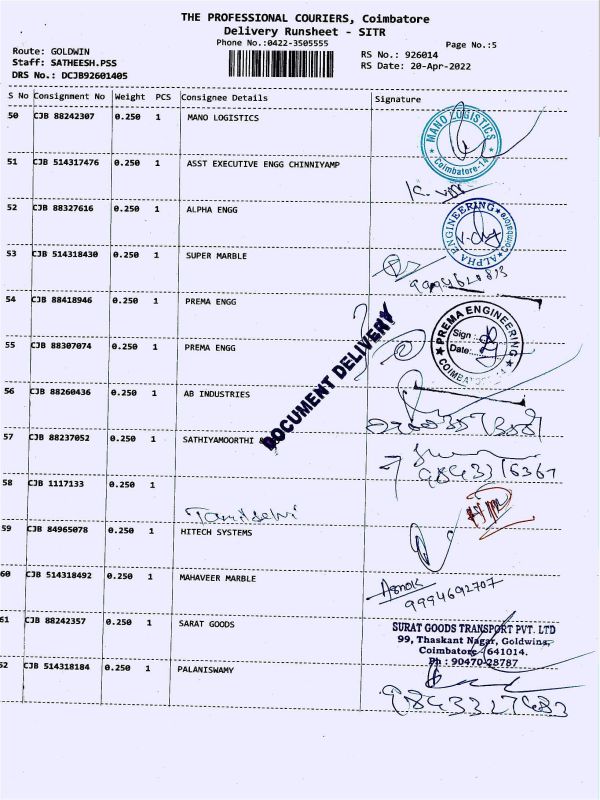 THE PROFESSIONAL COURIERS, Coimbatore
Delivery Runsheet - SITR
Phone No.:0422-3505555
Page No.:5
Route: GOLDWIN
RS No.: 926014
Staff: SATHEESH.PSS
RS Date: 20-Apr-2022
DRS No.: DCJB92601405
S No Consignment No Weight PCS Consignee Details Signature
50 CJB 88242307 0.250 1 MANO LOGISTICS
MANO LOGISTICS
Coimbatore-14
51 CJB 514317476 0.250 1 ASST EXECUTIVE ENGG CHINNIYAMP
52 CJB 88327616 0.250 1 ALPHA ENGG
ALPHA ENGINEERING
Coimbatore
53 CJB 514318430 0.250 1 SUPER MARBLE
54 CJB 88418946 0.250 1 PREMA ENGG
PREMA ENGINEERING
Sign
Date:
55 CJB 88307074 0.250 1 PREMA ENGG
DOCUMENT DELIVERY
56 CJB 88260436 0.250 1 AB INDUSTRIES
57 CJB 88237052 0.250 1 SATHIYAMOORTHI &
58 CJB 1117133 0.250 1
Tamilselvi
59 CJB 84965078 0.250 1 HITECH SYSTEMS
60 CJB 514318492 0.250 1 MAHAVEER MARBLE
Ashok
9994692707
61 CJB 88242357 0.250 1 SARAT GOODS
SURAT GOODS TRANSPORT PVT. LTD
99, Thaskant Nagar, Goldwins,
Coimbatore 641014.
Ph : 90470 28787
52 CJB 514318184 0.250 1 PALANISWAMY